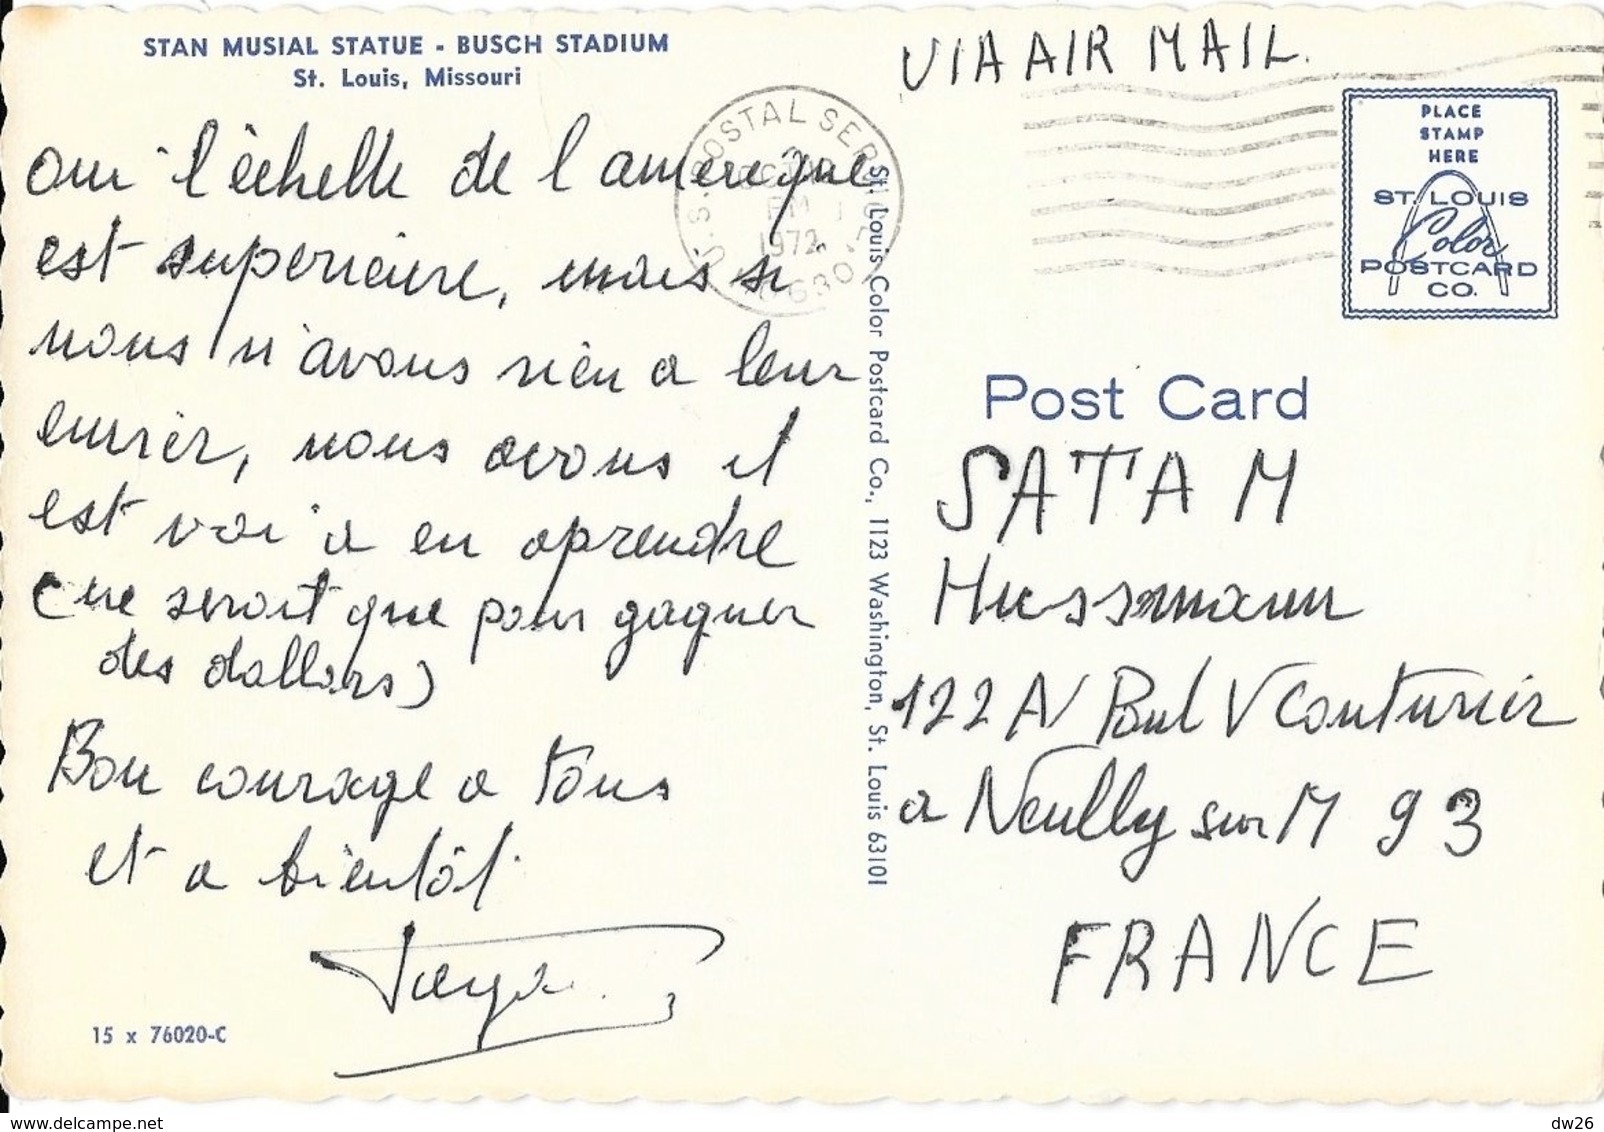 STAN MUSIAL STATUE - BUSCH STADIUM
St. Louis, Missouri
oui l'échelle de l'amereique
est superieure, mais si
nous n'avons rien a leur
envier, nous avons il
est vrai a en aprendre
(ne serait que pour gagner
des dollars)
Bon courage a tous
et a bientôt
15 x 76020-C
U.S. POSTAL SERVICE
PM
1972
St. Louis Color Postcard Co., 1123 Washington, St. Louis 63101
VIA AIR MAIL.
PLACE
STAMP
HERE
ST. LOUIS
Color
POSTCARD
CO.
Post Card
SATAM
Hussmann
122 AV Paul V Couturier
a Neully sur M 93
FRANCE
www.delcampe.net
dw26